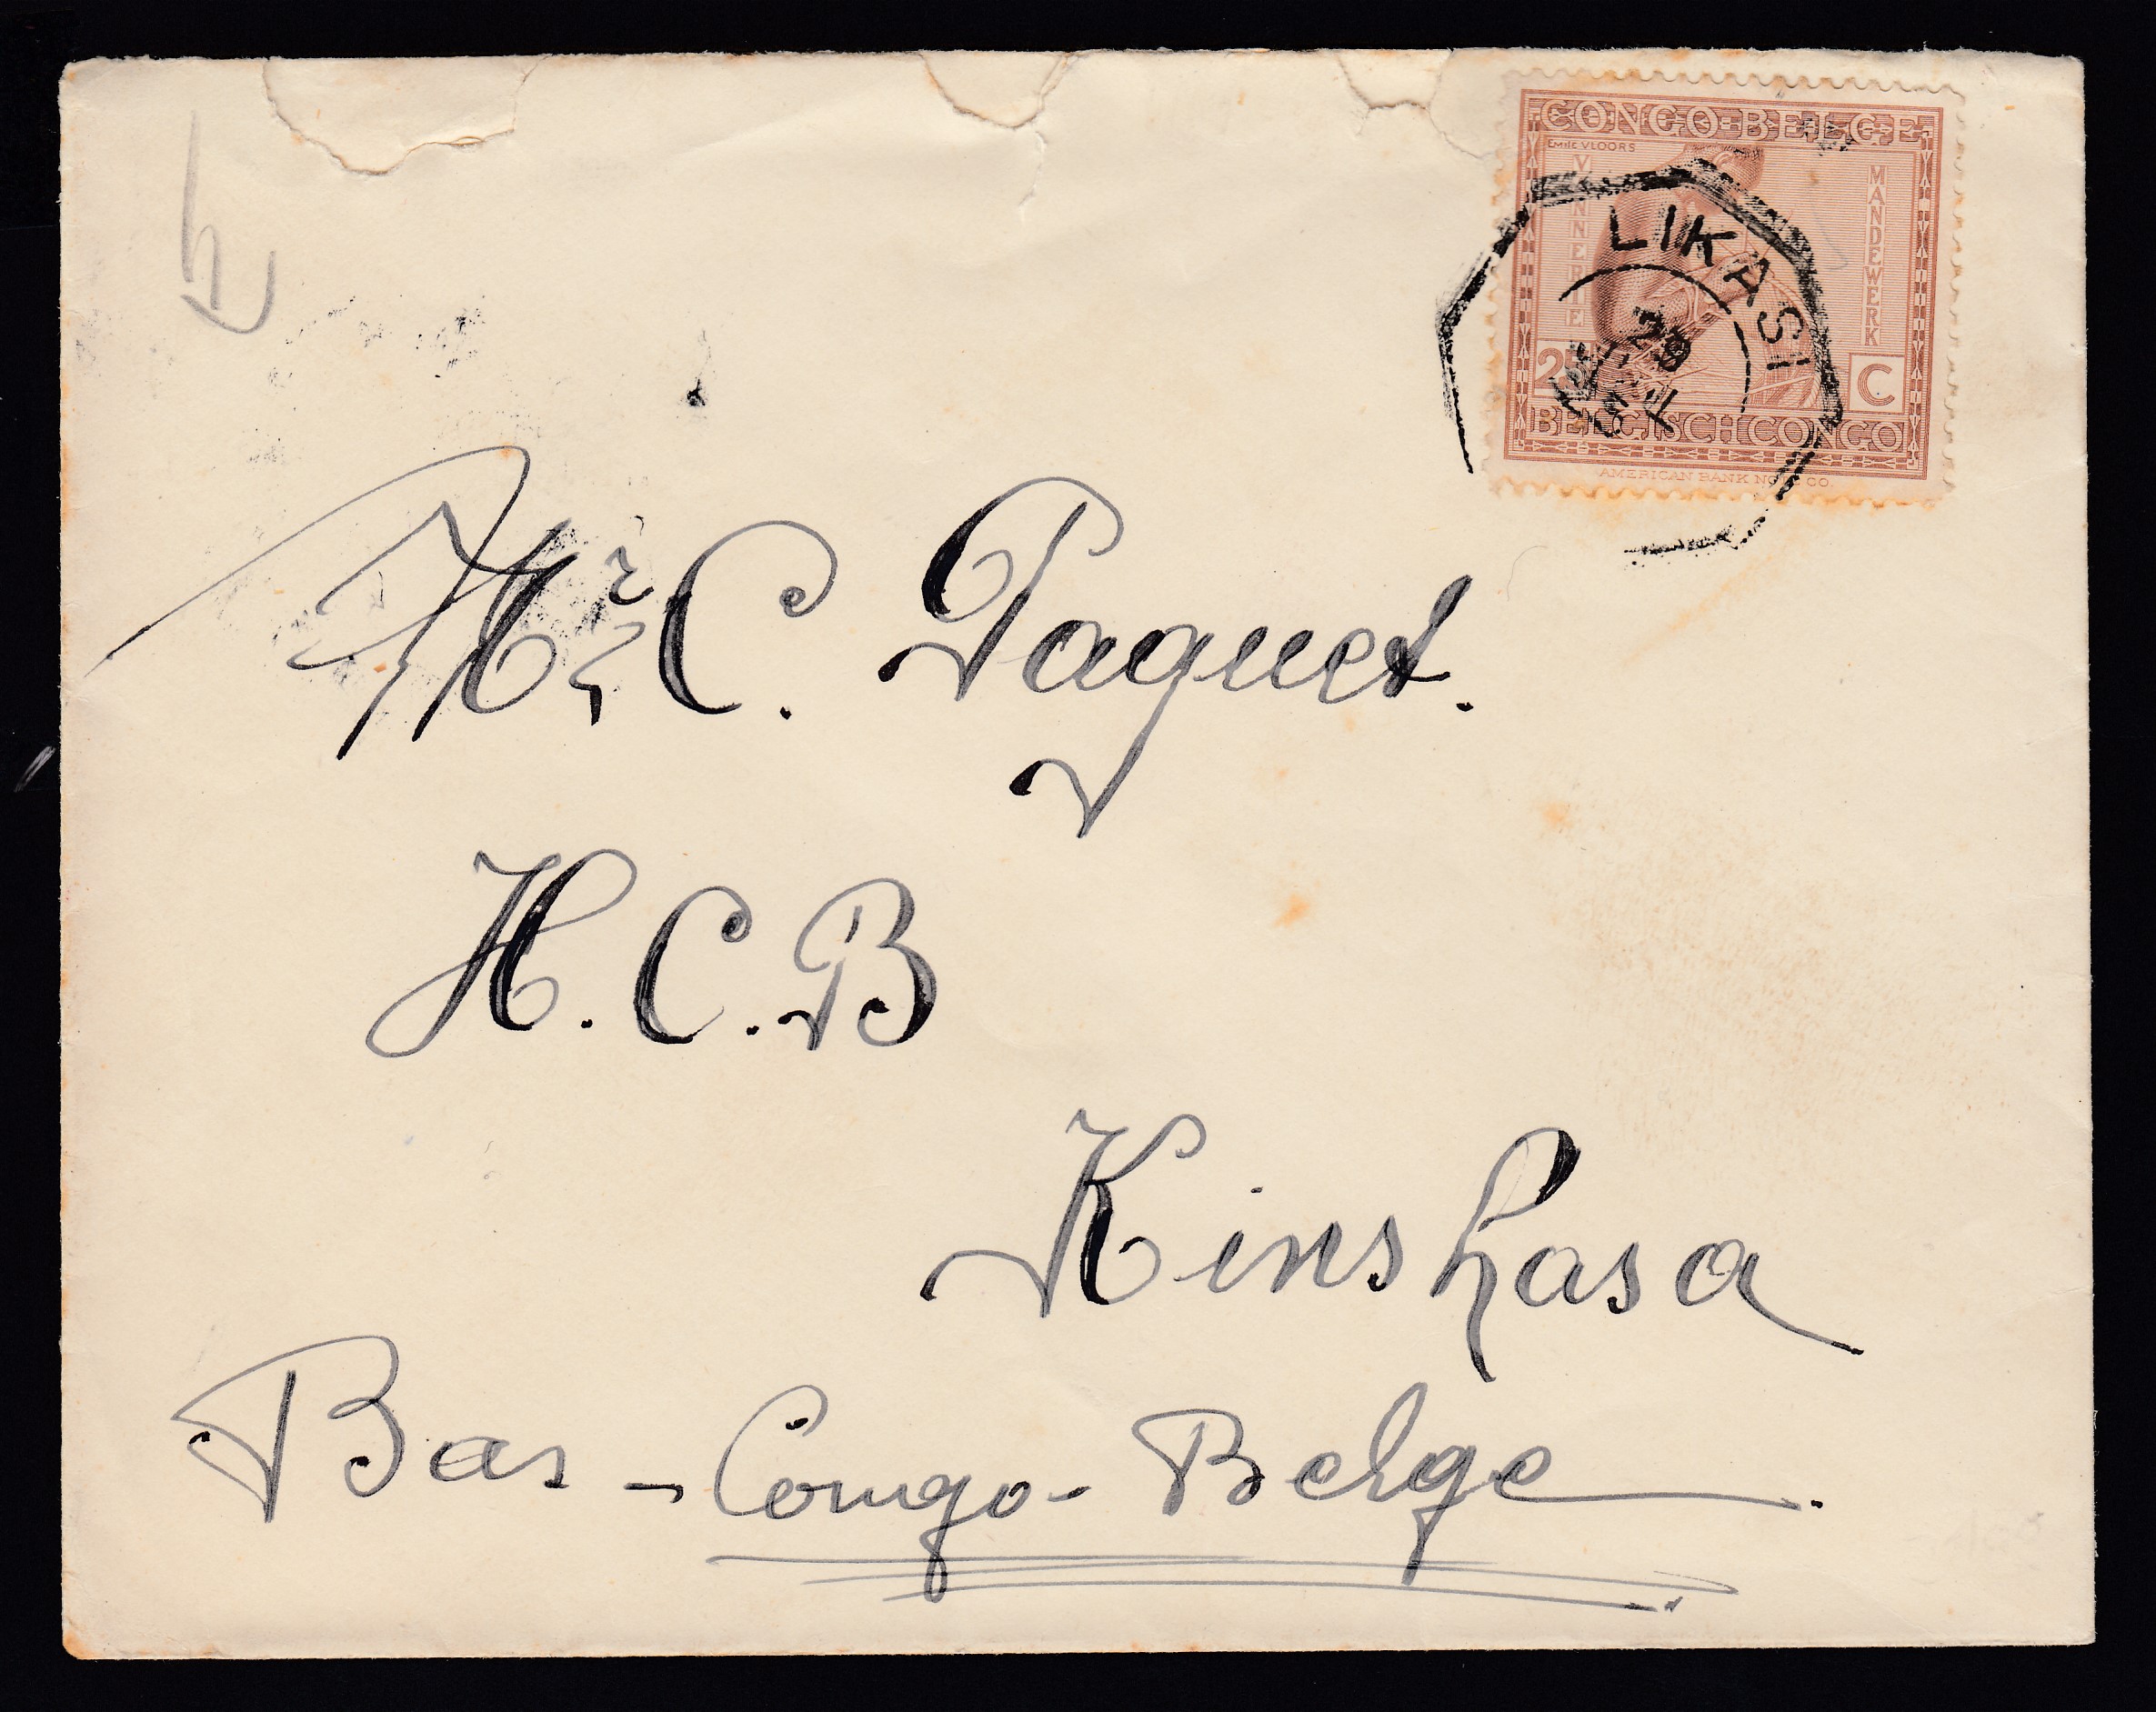 CONGO·BELGE
EMILE VLOORS
VANNERIE
MANDEWERK
LIKASI
25 C
BELGISCH CONGO
AMERICAN BANK NOTE CO.
Mr C. Paquet.
H.C.B
Kinshasa
Bas - Congo - Belge.